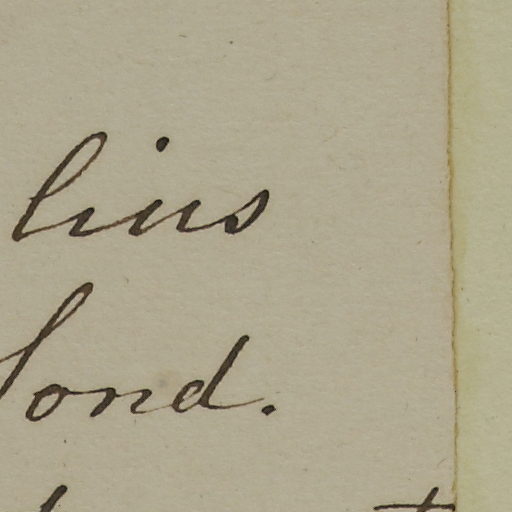 lius
Sond.